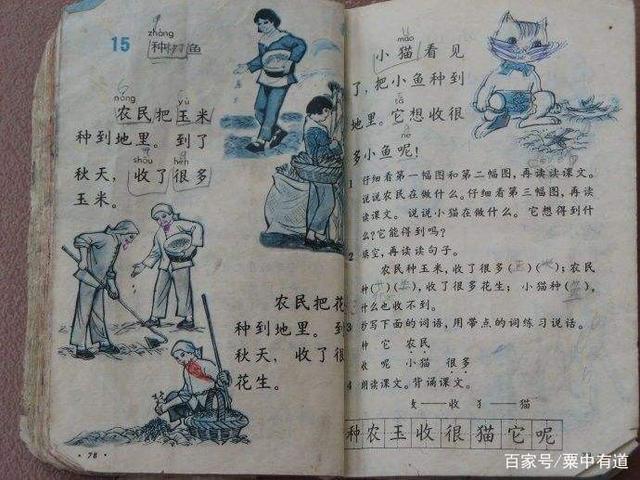 zhòng
15 种鱼
nóng yù
农民把玉米
种到地里。到了
shōu hěn
秋天，收了很多
玉米。
农民把花
种到地里。到
秋天，收了很
花生。
·78·
māo
小猫看见
了，把小鱼种到
tā
地里。它想收很
ne
多小鱼呢！
1 仔细看第一幅图和第二幅图，再读读课文。
说说农民在做什么。仔细看第三幅图，再读
读课文。说说小猫在做什么。它想得到什
么？它能得到吗？
2 填空，再读读句子。
农民种玉米，收了很多( )( )；农民
种( )( )，收了很多花生；小猫种( )，
什么也收不到。
3 抄写下面的词语，用带点的词练习说话。
种 它 农民
收 呢 小猫 很多
4 朗读课文。背诵课文。
攵——收 犭——猫
种农玉收很猫它呢
百家号/粟中有道